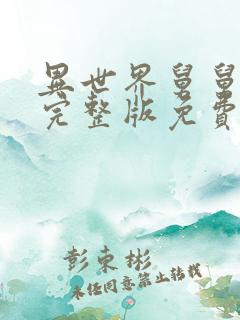 異世界舅舅
完整版免費
彭東彬
未经同意禁止转载